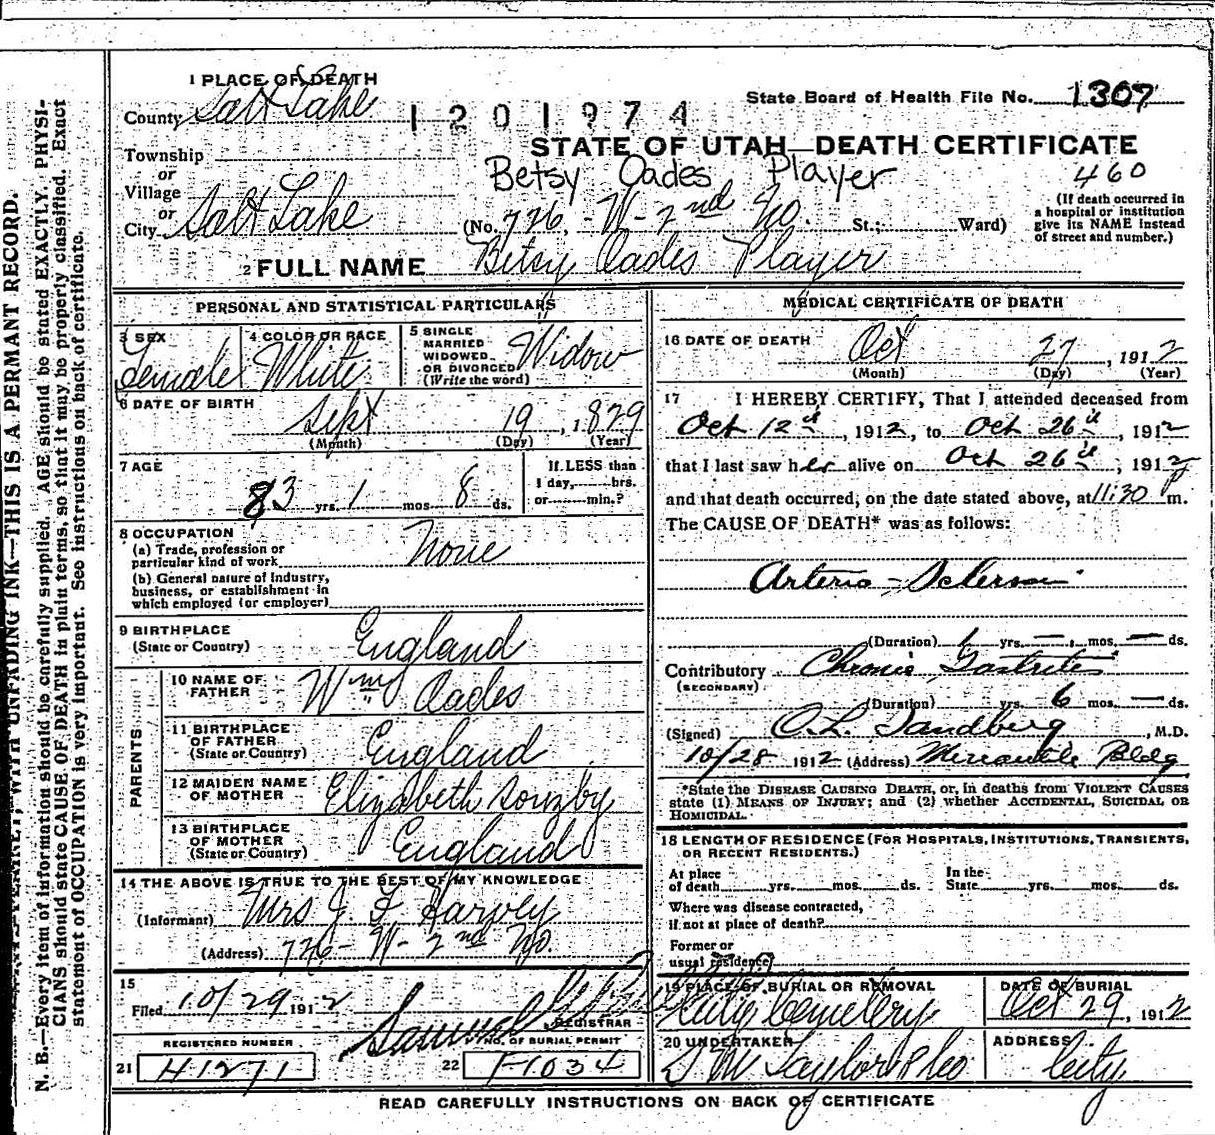 1 PLACE OF DEATH
County Salt Lake
1201974
State Board of Health File No. 1307
STATE OF UTAH—DEATH CERTIFICATE
Township
or
Village
or
City Salt Lake
Betsy Oades Player
460
(No. 726. - W - 2nd No. St.; Ward)
(If death occurred in
a hospital or institution
give its NAME instead
of street and number.)
2 FULL NAME Betsy Oades Player
PERSONAL AND STATISTICAL PARTICULARS
3 SEX Female
4 COLOR OR RACE White
5 SINGLE
MARRIED
WIDOWED
OR DIVORCED
(Write the word) Widow
6 DATE OF BIRTH
Sept 19, 1829
(Month) (Day) (Year)
7 AGE
83 yrs. 1 mos. 8 ds.
If LESS than
1 day, hrs.
or min.?
8 OCCUPATION
(a) Trade, profession or
particular kind of work None
(b) General nature of Industry,
business, or establishment in
which employed (or employer)
9 BIRTHPLACE
(State or Country) England
PARENTS
10 NAME OF
FATHER Wm Oades
11 BIRTHPLACE
OF FATHER
(State or Country) England
12 MAIDEN NAME
OF MOTHER Elizabeth
13 BIRTHPLACE
OF MOTHER
(State or Country) England
14 THE ABOVE IS TRUE TO THE BEST OF MY KNOWLEDGE
(Informant) Mrs J. F. Harvey
(Address) 726 - W - 2nd No.
15
Filed 10/29 1912
Samuel
REGISTRAR
REGISTERED NUMBER
21 H1271
NO. OF BURIAL PERMIT
22 F1034
MEDICAL CERTIFICATE OF DEATH
16 DATE OF DEATH Oct 27, 1912
(Month) (Day) (Year)
17 I HEREBY CERTIFY, That I attended deceased from
Oct 12th, 1912, to Oct 26th, 1912
that I last saw her alive on Oct 26th, 1912
and that death occurred, on the date stated above, at 11:30 P m.
The CAUSE OF DEATH* was as follows:
Arterio-Sclerosis
(Duration) 1 yrs. — mos. — ds.
Contributory Chronic Gastritis
(SECONDARY)
(Duration) yrs. 6 mos. — ds.
(Signed) O.L. Sandberg, M.D.
10/28 1912 (Address) Mercantile Bldg
*State the DISEASE CAUSING DEATH, or, in deaths from VIOLENT CAUSES
state (1) MEANS OF INJURY; and (2) whether ACCIDENTAL, SUICIDAL OR
HOMICIDAL.
18 LENGTH OF RESIDENCE (FOR HOSPITALS, INSTITUTIONS, TRANSIENTS,
OR RECENT RESIDENTS.)
At place
of death yrs. mos. ds.
In the
State yrs. mos. ds.
Where was disease contracted,
if not at place of death?
Former or
usual residence
19 PLACE OF BURIAL OR REMOVAL
City Cemetery
DATE OF BURIAL
Oct 29, 1912
20 UNDERTAKER
S M Taylor &
ADDRESS
City
READ CAREFULLY INSTRUCTIONS ON BACK OF CERTIFICATE
WITH UNFADING INK—THIS IS A PERMANT RECORD.
N. B.—Every item of information should be carefully supplied. AGE should be stated EXACTLY. PHYSI-
CIANS should state CAUSE OF DEATH in plain terms, so that it may be properly classified. Exact
statement of OCCUPATION is very important. See instructions on back of certificate.